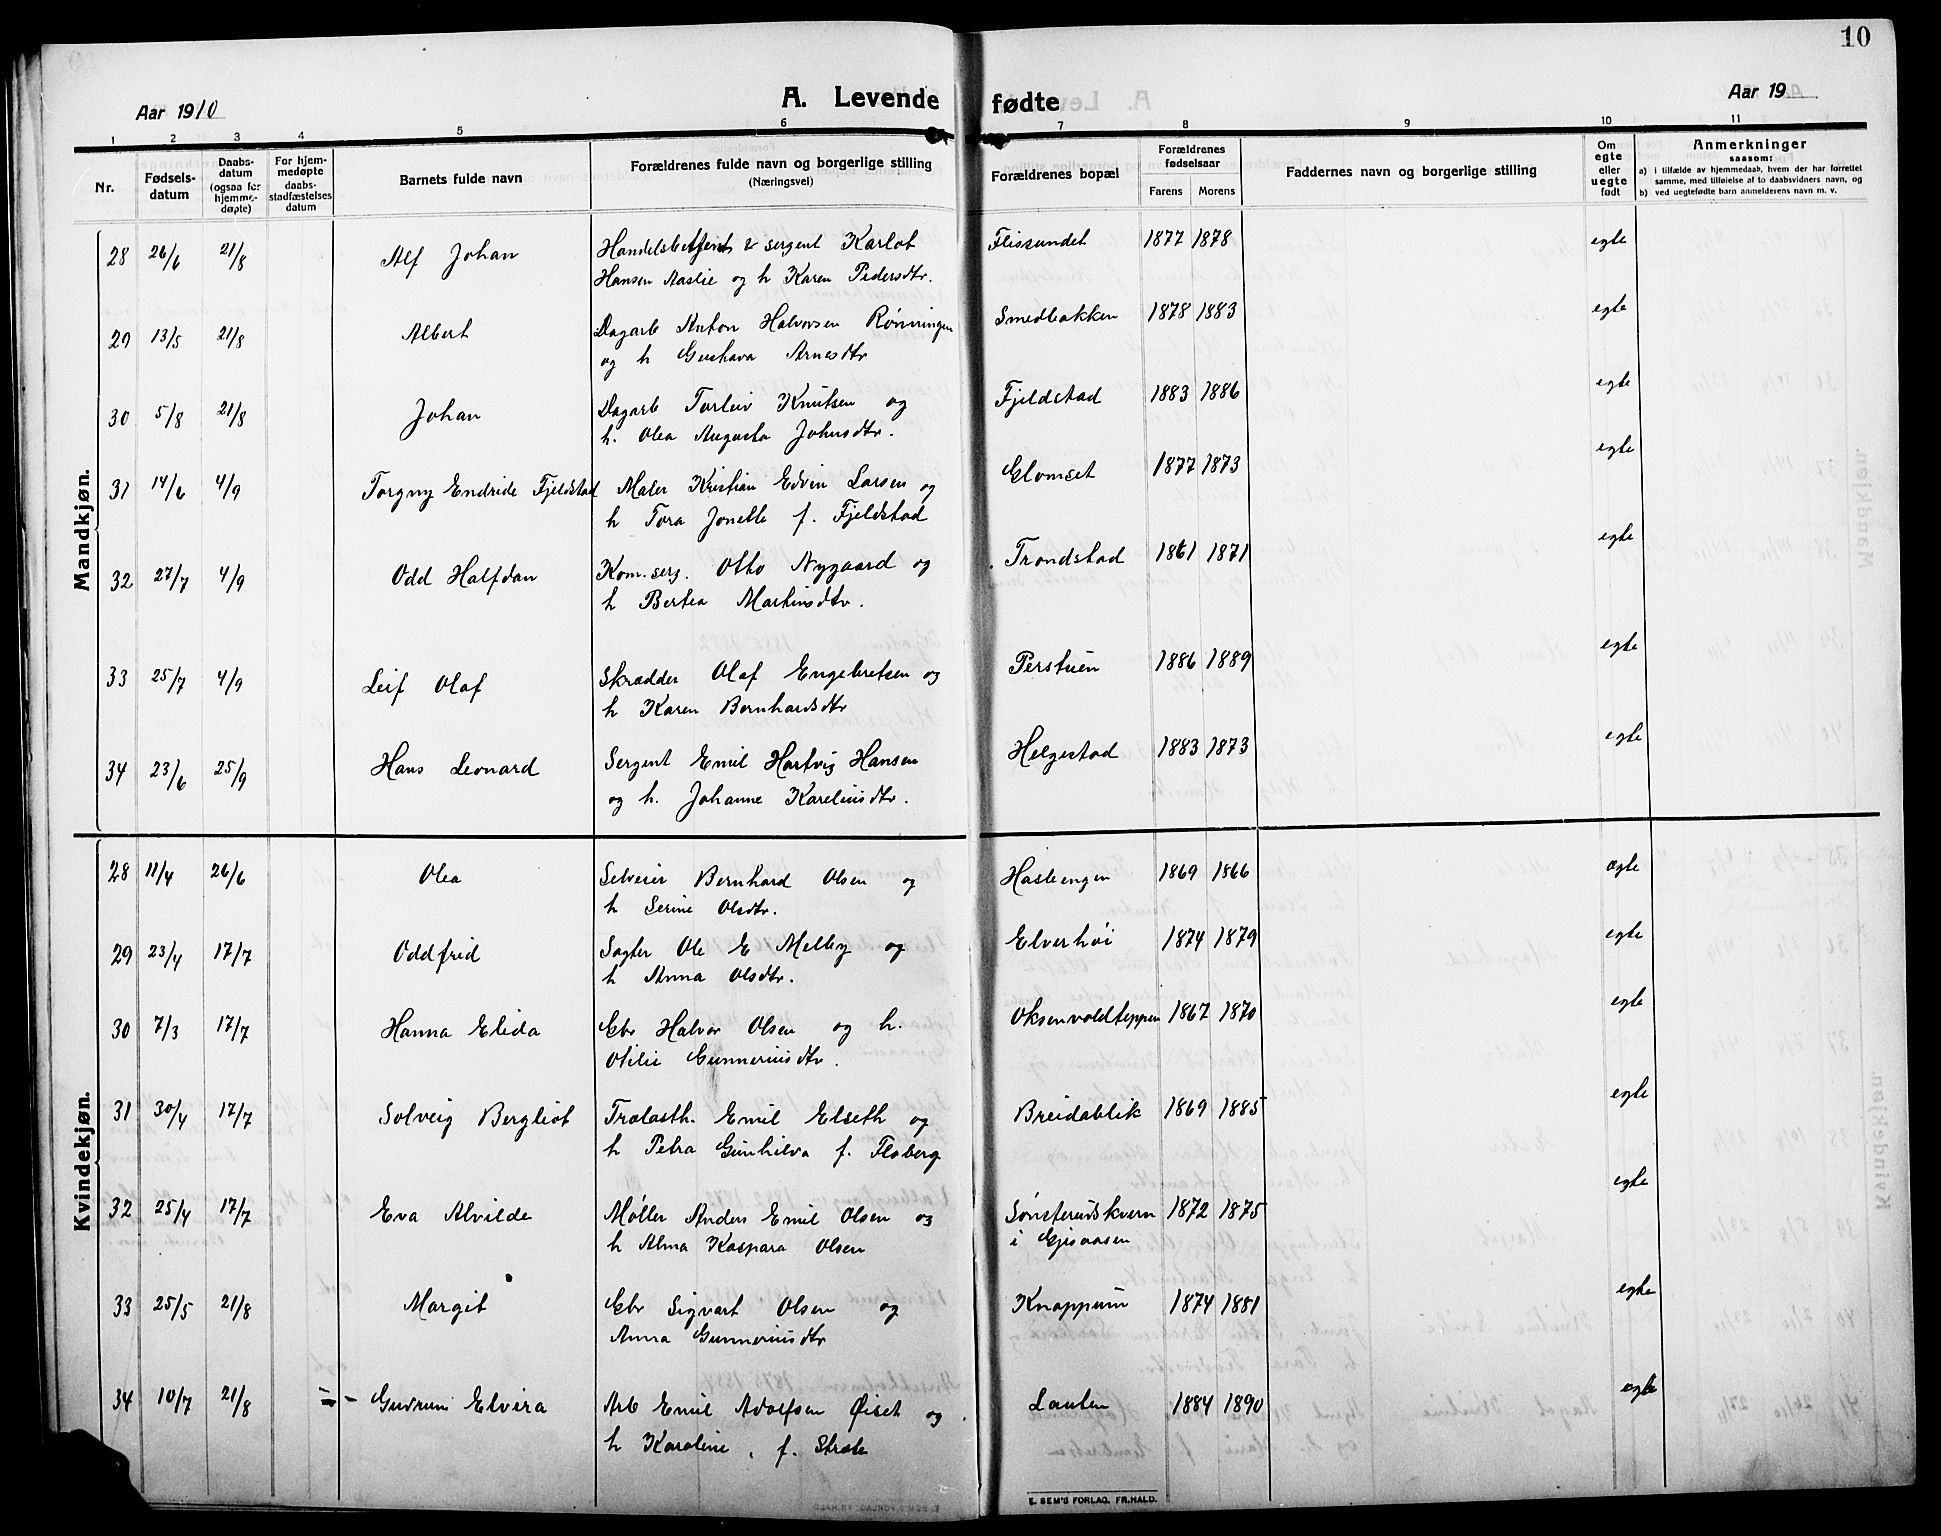 10
Aar 1910
A. Levende fødte
Aar 19
1 2 3 4 5 6 7 8 9 10 11
Nr.
Fødsels-
datum
Daabs-
datum
(ogsaa for
hjemme-
døpte)
For hjem-
medøpte
daabs-
stadfæstelses
datum
Barnets fulde navn
Forældrenes fulde navn og borgerlige stilling
(Næringsvei)
Forældrenes bopæl
Forældrenes
fødselsaar
Farens Morens
Faddernes navn og borgerlige stilling
Om
egte
eller
uegte
født
Anmerkninger
saasom:
a) i tilfælde av hjemmedaab, hvem der har forrettet
samme, med tilføielse af to daabsvidners navn, og
b) ved uegtefødte barn anmelderens navn m. v.
Mandkjøn.
28 26/6 21/8 Alf Johan Handelsbetjent & sergent Karlot Flissundet 1877 1878 egte
Hansen Aaslie og h Karen Pedersdtr.
29 13/5 21/8 Albert Dagarb Anton Halvorsen Rønningen Smedbakken 1878 1883 egte
og h Gustava Arnesdtr
30 5/8 21/8 Johan Dagarb Torleiv Knutsen og Fjeldstad 1883 1886 egte
h. Olea Augusta Johnsdtr.
31 14/6 4/9 Torgny Endride Fjeldstad Maler Kristian Edvin Larsen og Glomset 1877 1873 egte
h Tora Jonette f. Fjeldstad
32 27/7 4/9 Odd Halfdan Kom.serg. Otto Nygaard og Trondstad 1861 1871 egte
h Bertea Martinsdtr.
33 25/7 4/9 Leif Olaf Skrædder Olaf Engebretsen og Perstuen 1886 1889 egte
h Karen Bernhardsdtr
34 23/6 25/9 Hans Leonard Sergent Emil Hartvig Hansen Helgestad 1883 1873 egte
og h. Johanne Kareliusdtr.
Kvindekjøn.
28 11/4 26/6 Olea Selveier Bernhard Olsen og Hasleengen 1869 1866 ægte
h Serine Olsdtr.
29 23/4 17/7 Oddfrid Sagter Ole E Melby og Elverhøi 1874 1879 egte
h Anna Olsdtr.
30 7/3 17/7 Hanna Elida Gbr Halvor Olsen og h. Oksenvoldteppen 1867 1870 egte
Otilie Gunneriusdtr.
31 30/4 17/7 Solveig Bergliot Trælasth. Emil Elseth og Breidablik 1869 1885 egte
h Petra Gunhilva f. Floberg
32 25/4 17/7 Eva Alvilde Møller Anders Emil Olsen og Sønsterudskvern 1872 1875 egte
h Alma Kaspara Olsen i Gjesaasen
33 25/5 21/8 Margit Gbr Sigvart Olsen og Knappum 1874 1881 egte
Anna Gunneriusdtr
34 10/7 21/8 Gudrun Elvira Arb Emil Adolfsen Øiset og Lauten 1884 1890 egte
h Karoline, f. Strate
E. SEM'S FORLAG. FR.HALD.